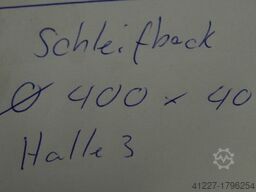 Schleifbock
Ø 400 x 40
Halle 3
41227-1796254